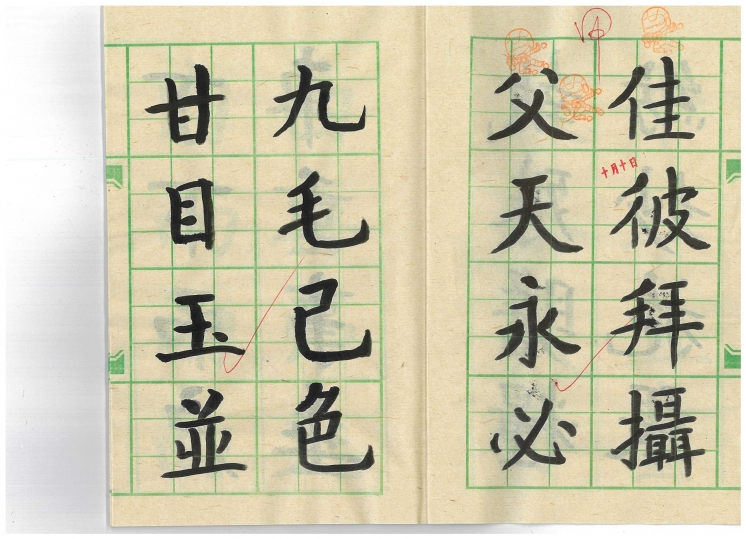 佳彼拜攝
父天永必
九毛己色
甘目玉並
十月十日